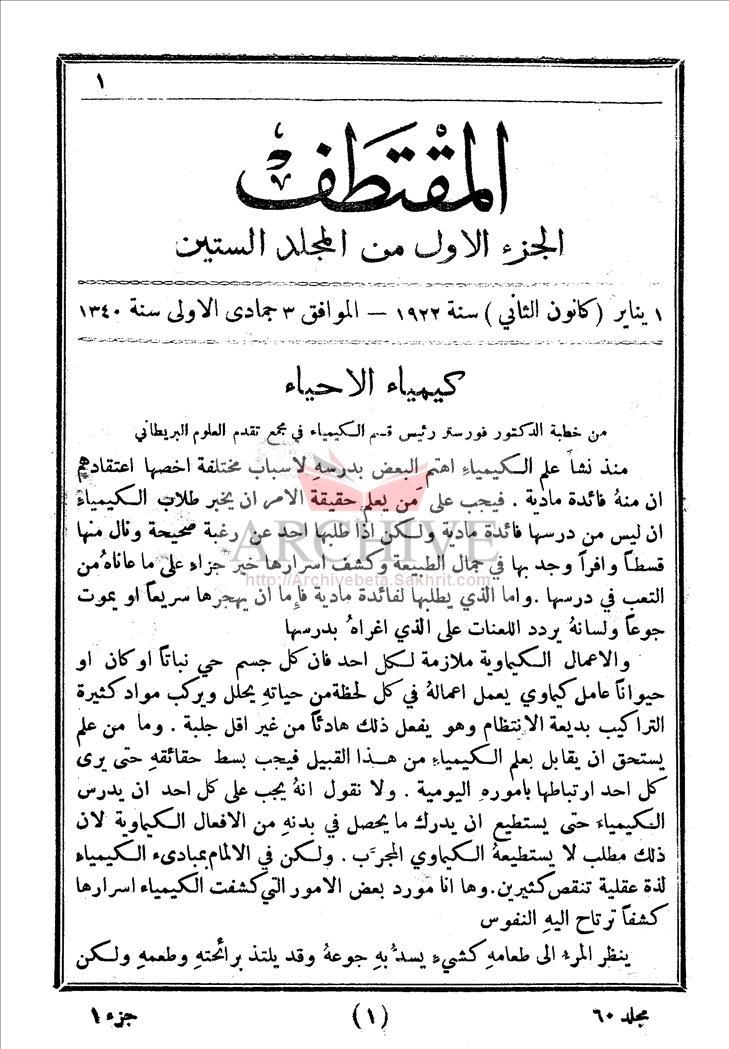 ١
المقتطف
الجزء الاول من المجلد الستين
١ يناير (كانون الثاني) سنة ١٩٢٢ — الموافق ٣ جمادى الاولى سنة ١٣٤٠
كيمياء الاحياء
من خطبة الدكتور فورستر رئيس قسم الكيمياء في مجمع تقدم العلوم البريطاني
منذ نشأ علم الكيمياءِ اهتم البعض بدرسهِ لاسباب مختلفة اخصها اعتقادهم
ان منهُ فائدة مادية . فيجب على من يعلم حقيقة الامر ان يخبر طلاب الكيمياءِ
ان ليس من درسها فائدة مادية ولكن اذا طلبها احد عن رغبة صحيحة ونال منها
قسطاً وافراً وجد بها في جمال الطبيعة وكشف اسرارها خير جزاءٍ على ما عاناهُ من
التعب في درسها . واما الذي يطلبها لفائدة مادية فإما ان يهجرها سريعاً او يموت
جوعاً ولسانهُ يردد اللعنات على الذي اغراهُ بدرسها
والاعمال الكيماوية ملازمة لكل احد فان كل جسم حي نباتاً او كان او
حيواناً عامل كيماوي يعمل اعمالهُ في كل لحظة من حياتهِ يحلل ويركب مواد كثيرة
التراكيب بديعة الانتظام وهو يفعل ذلك هادئاً من غير اقل جلبة . وما من علم
يستحق ان يقابل بعلم الكيمياءِ من هذا القبيل فيجب بسط حقائقهِ حتى يرى
كل احد ارتباطها بامورهِ اليومية . ولا نقول انهُ يجب على كل احد ان يدرس
الكيمياءَ حتى يستطيع ان يدرك ما يحصل في بدنهِ من الافعال الكيماوية لان
ذلك مطلب لا يستطيعهُ الكيماوي المجرَّب . ولكن في الالمام بمبادىء الكيمياءِ
لذة عقلية تنقص كثيرين . وها انا مورد بعض الامور التي كشفت الكيمياء اسرارها
كشفاً ترتاح اليهِ النفوس
ينظر المرءُ الى طعامهِ كشيءٍ يسدُّ بهِ جوعهُ وقد يلتذ برائحتهِ وطعمهِ ولكن
مجلد ٦٠ (١) جزء ١
ARCHIVE
http://Archivebeta.Sakhrit.com